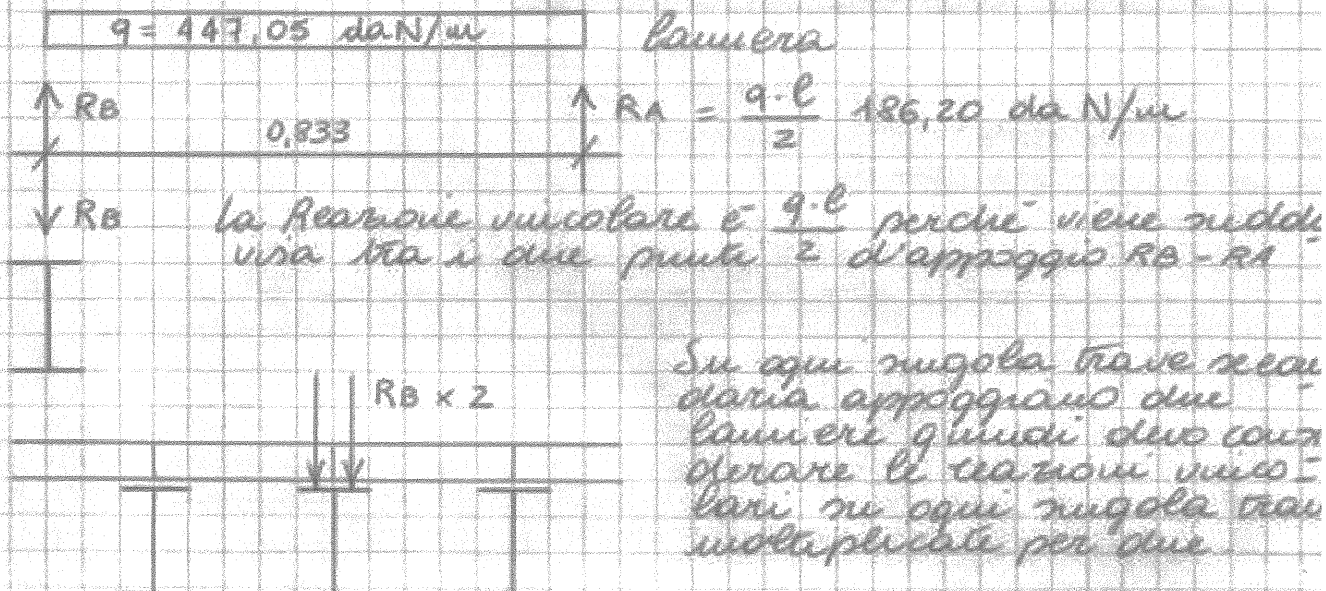 q = 447,05 daN/m
lamiera
RB
0,833
RA = q·l/2 186,20 daN/m
RB
La Reazione vincolare è q·l/2 perchè viene suddi-
visa tra i due punti d'appoggio RB - RA
RB × 2
Su ogni singola trave secon-
daria appoggiano due
lamiere quindi devo consi-
derare le reazioni vinco-
lari su ogni singola trave
moltiplicate per due